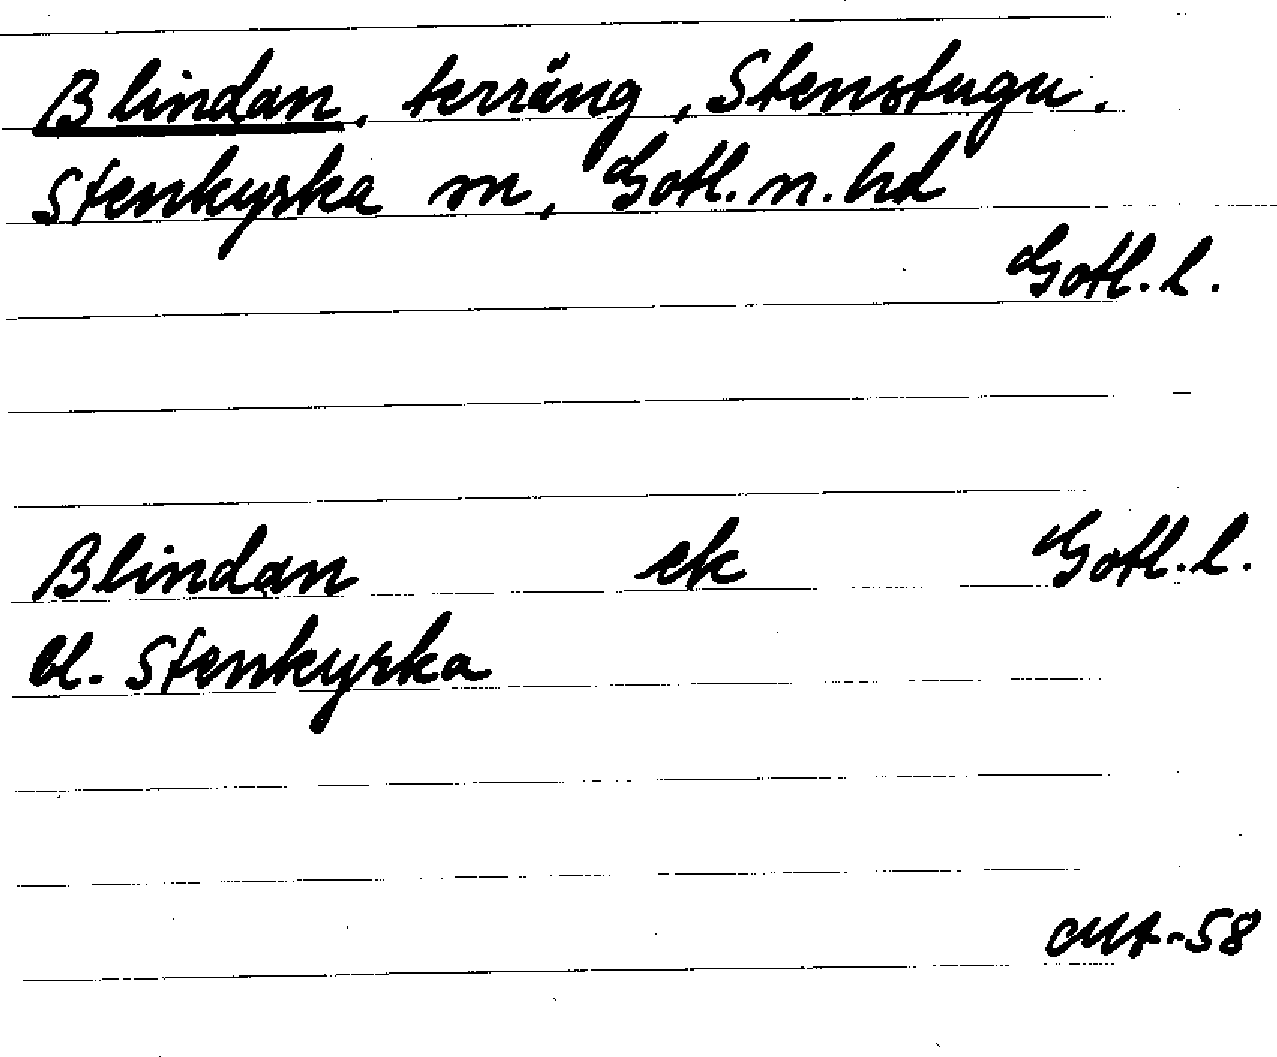 Blindan, terräng, Stenstugu.
Stenkyrka sn, Gotl. n. hd
Gotl. l.
Blindan ek Gotl. l.
bl. Stenkyrka
-58